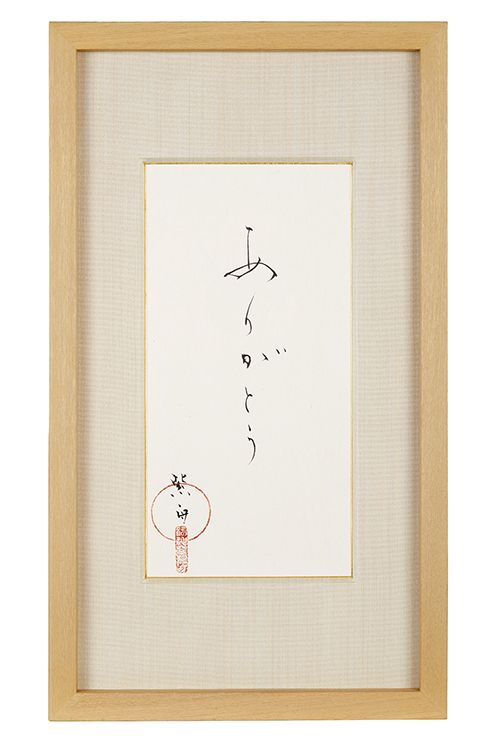 ありがとう
紫舟